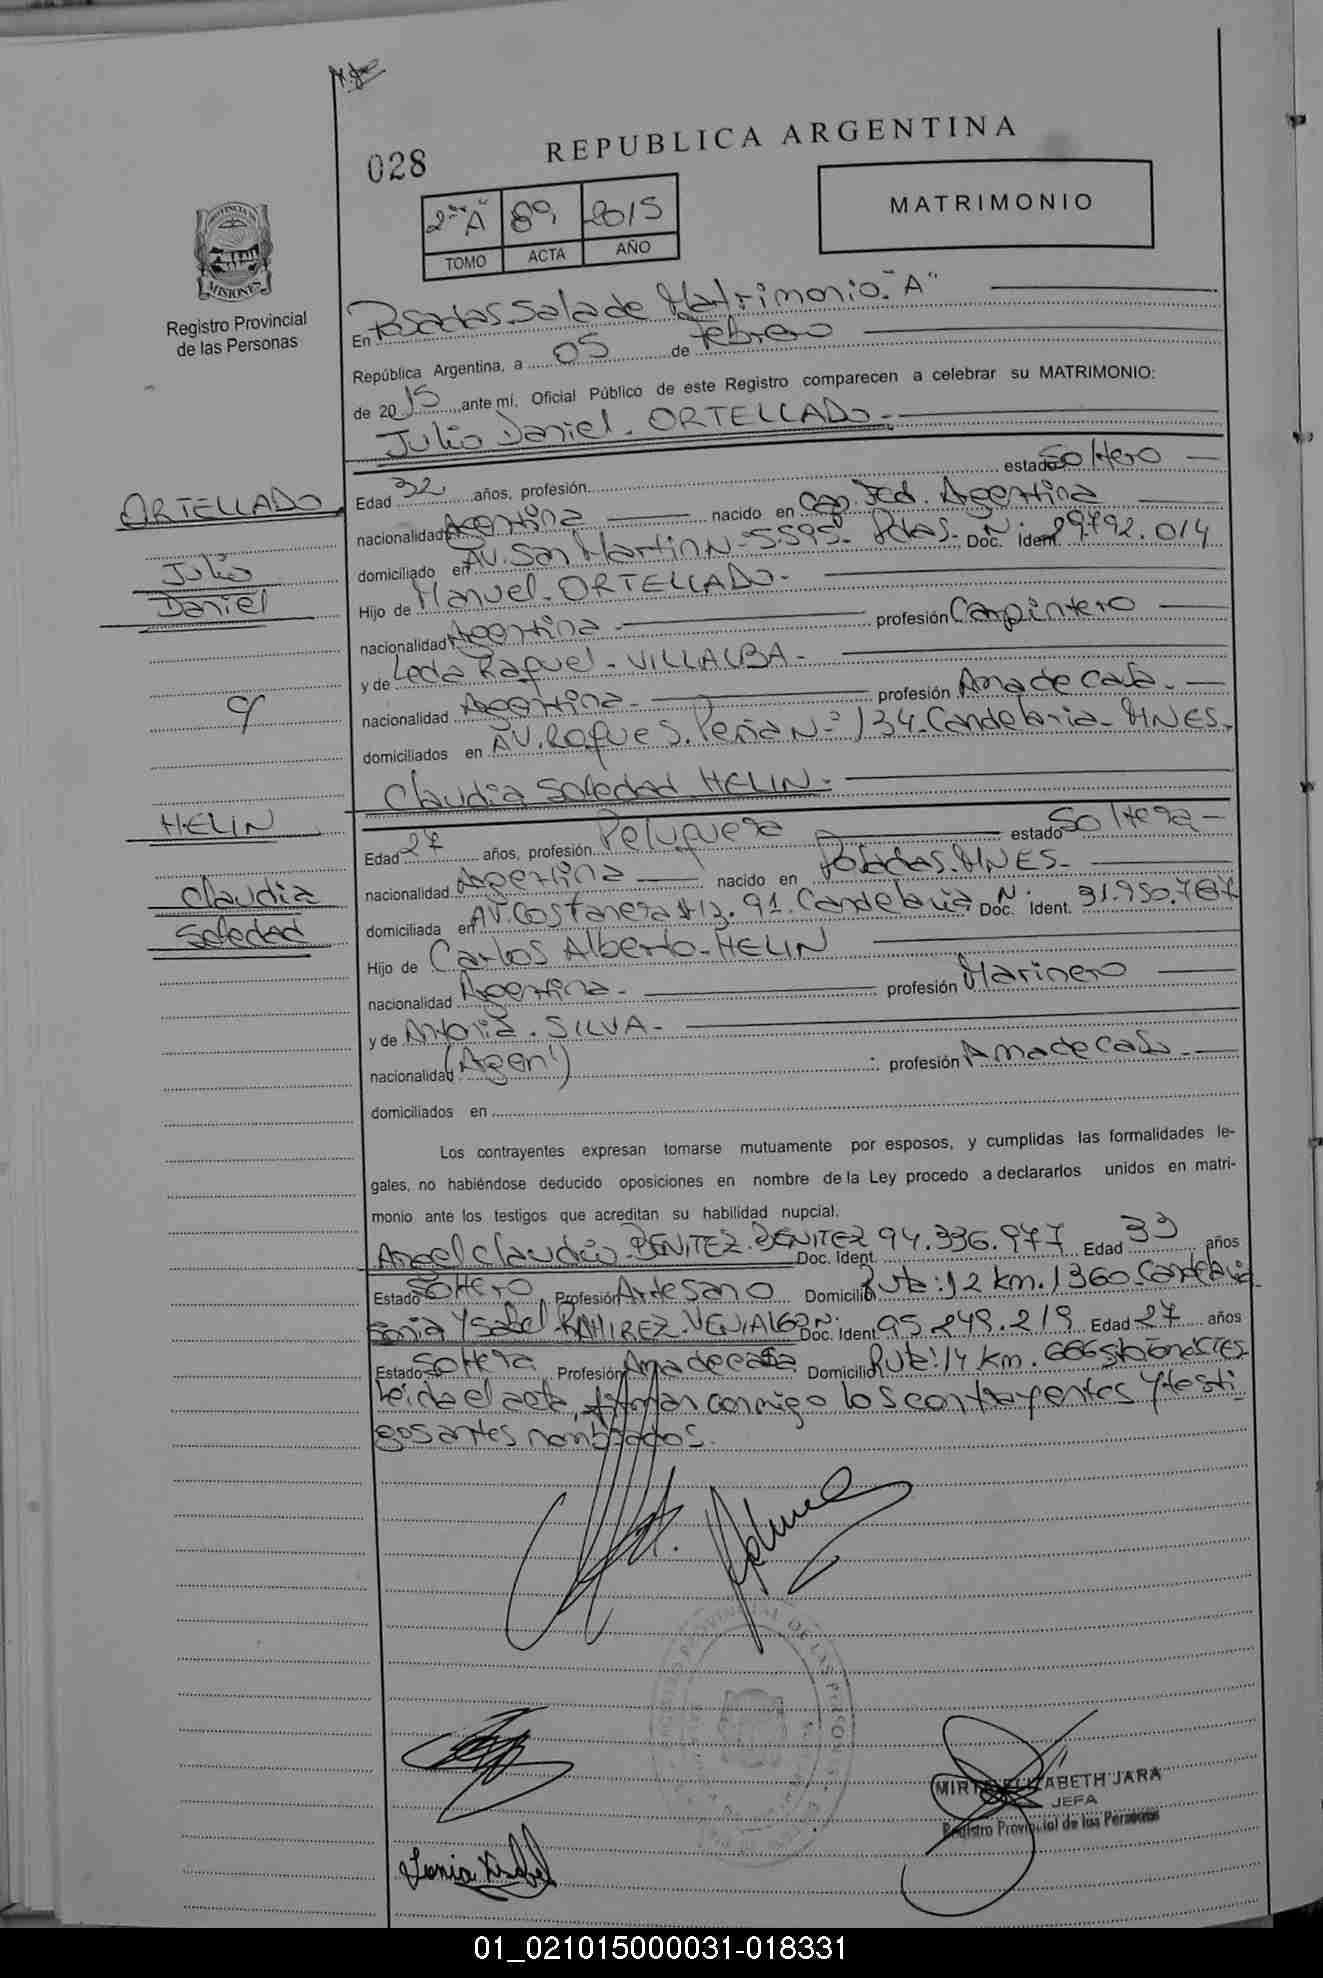 028
REPUBLICA ARGENTINA
MATRIMONIO
2 "A" 89 2015
TOMO ACTA AÑO
PROVINCIA DE
MISIONES
Registro Provincial
de las Personas
En Posadas Sala de Matrimonio "A"
República Argentina, a 05 de Febrero
de 2015, ante mí, Oficial Público de este Registro comparecen a celebrar su MATRIMONIO:
Julio Daniel - ORTELLADO -
ORTELLADO
Julio
Daniel
Edad 32 años, profesión estado Soltero
nacionalidad Argentina nacido en Cap. Fed. Argentina
domiciliado en AV. San Martin N° 5595 - Pdas. Doc. Ident. N° 29.792.014
Hijo de Manuel - ORTELLADO -
nacionalidad Argentina - profesión Carpintero
y de Leda Raquel - VILLALBA -
nacionalidad Argentina - profesión Ama de Casa -
domiciliados en AV. Roque S. Peña N° 134 - Candelaria - MNES.
Claudia Soledad HELIN -
c/
HELIN
Claudia
Soledad
Edad 27 años, profesión Peluquera estado Soltera
nacionalidad Argentina nacido en Posadas. MNES -
domiciliada en AV. Costanera Mz. 91 Candelaria Doc. N° Ident. 31.950.767
Hijo de Carlos Alberto - HELIN
nacionalidad Argentina - profesión Marinero
y de Antonia - SILVA -
nacionalidad (Argen') profesión Ama de Casa -
domiciliados en
Los contrayentes expresan tomarse mutuamente por esposos, y cumplidas las formalidades le-
gales, no habiéndose deducido oposiciones en nombre de la Ley procedo a declararlos unidos en matri-
monio ante los testigos que acreditan su habilidad nupcial.
Angel Claudio - BENITEZ - BENITEZ Doc. Ident. 94.336.977 Edad 33 años
Estado Soltero Profesión Artesano Domicilio Ruta: 12 km. 1360 - Candelaria
Sonia Ysabel - RAMIREZ - VENIALGO Doc. Ident. 95.249.219 Edad 27 años
Estado Soltera Profesión Ama de casa Domicilio Ruta: 14 km.
Leida el acta, firman conmigo los contrayentes y testi
gos antes nombrados.
REGISTRO PROVINCIAL DE LAS PERSONAS
MIRTA ELIZABETH JARA
JEFA
Registro Provincial de las Personas
Sonia Ysabel
01_021015000031-018331